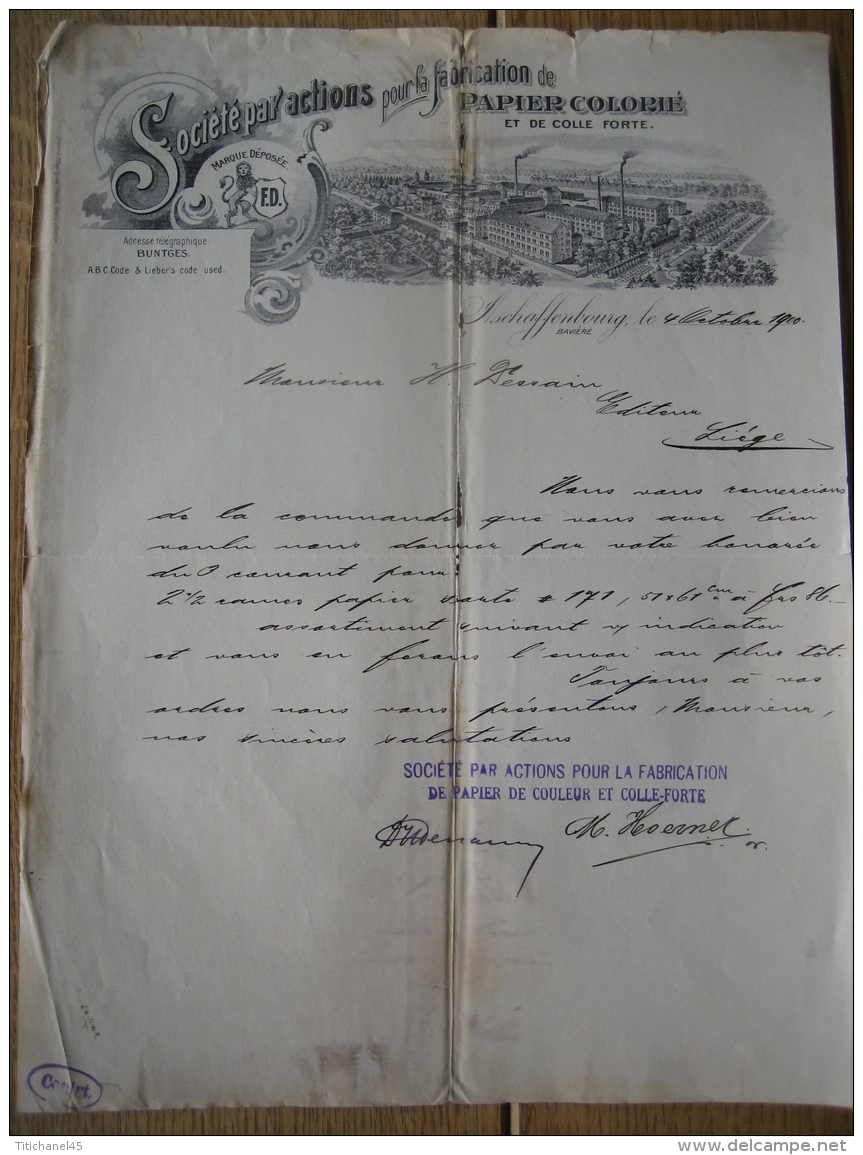 Société par actions pour la fabrication de
PAPIER COLORIÉ
ET DE COLLE FORTE.
MARQUE DÉPOSÉE
F.D.
Adresse télégraphique
BUNTGES.
A.B.C. Code & Lieber's code used.
Aschaffenbourg, le 4 Octobre 1900.
BAVIÈRE
Monsieur H. Dessain
Editeur
Liége
Nous vous remercions
de la commande que vous avez bien
voulu nous donner par votre honorée
du 3 courant pour:
2 1/2 rames papier sorte 171, 51 x 61 cm à frs 86.–
assortiment suivant v/ indication
et vous en ferons l'envoi au plus tôt.
Toujours à vos
ordres nous vous présentons, Monsieur,
nos sincères salutations
SOCIÉTÉ PAR ACTIONS POUR LA FABRICATION
DE PAPIER DE COULEUR ET COLLE-FORTE
M. Hoernel.
Titichanel45
www.delcampe.net